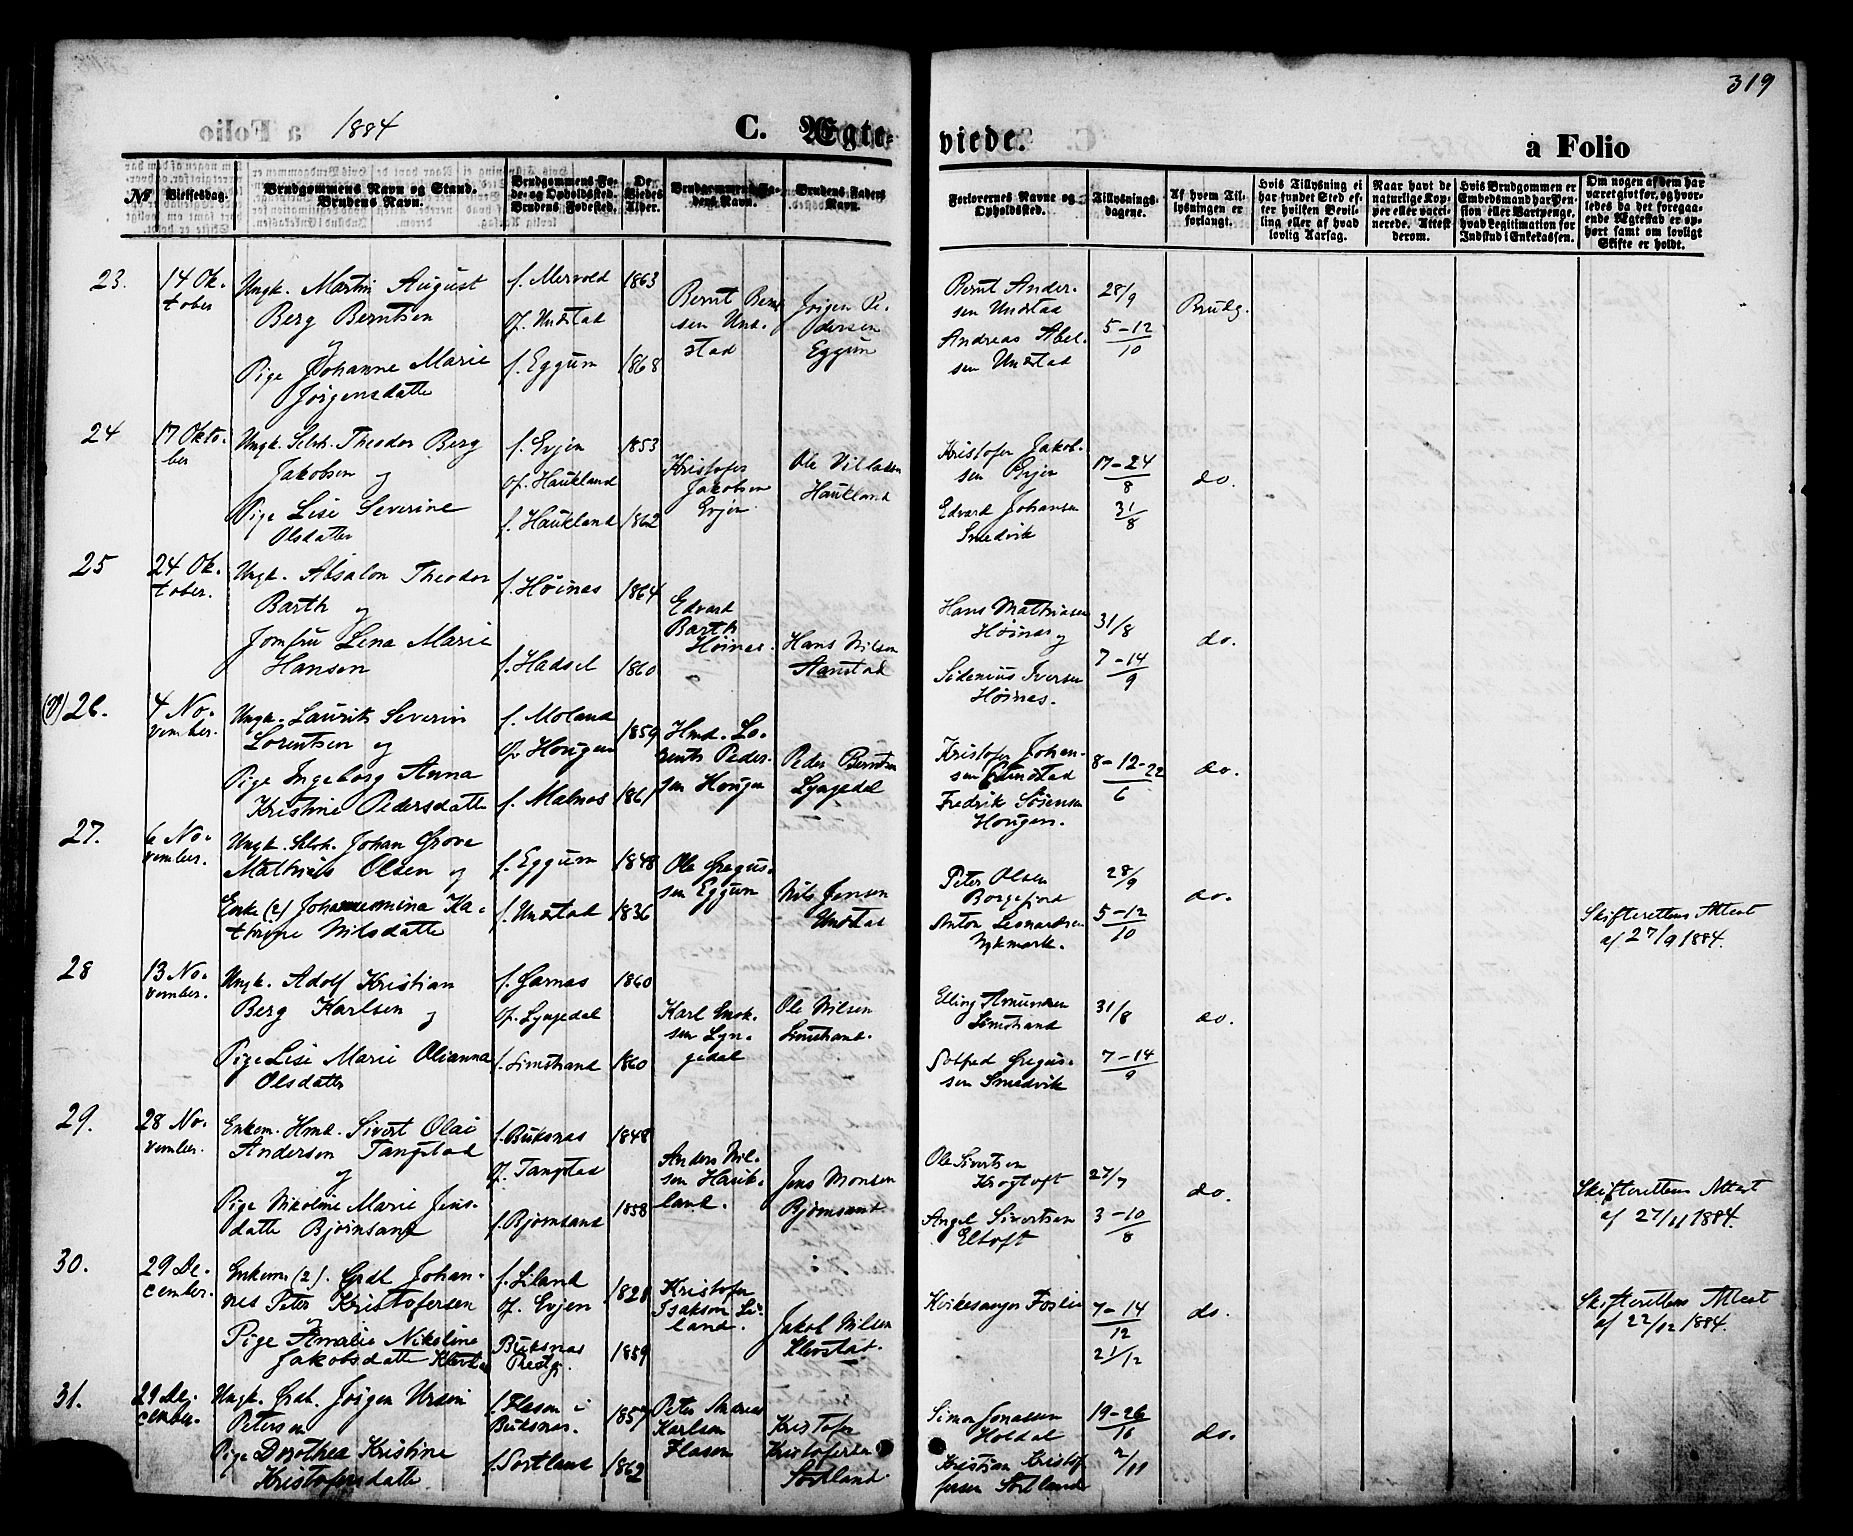 319
1884 C. Ægteviede. a Folio
№ Vielsesdag. Brudgommens Navn og Stand. Brudens Navn. Brudgommens Føde- og Opholdssted. Brudens Fødested. De Viedes Alder. Brudgommens Faders Navn. Brudens Faders Navn. Forlovernes Navne og Opholdssted. Tillysningsdagene. Af hvem Tillysningen er forlangt. Hvis Tillysning ei har fundet Sted efter hvilken Bevilling eller af hvad lovlig Aarsag. Naar havt de naturlige Kopper eller vaccinerede. Attest derom. Hvis Brudgommen er Embedsmand har Pension eller Vartpenge, hvad Legitimation for Indskud i Enkekassen. Om nogen af dem har været givt før, og hvorledes da det foregaaende Ægteskab er ophørt samt om lovligt Skifte er holdt.
23. 14 Oktober
Ungk. Martin August
Berg Berntsen
og
Pige Johanne Marie
Jørgensdatte
f. Mervold 1863
Of. Unstad
f. Eggum 1868
Bernt Bernsen Unstad
Jørgen Pedersen
Eggum
Bernt Andersen Unstad
Andreas Abelsen Unstad
28/9
5-12/10
Brudg.
24 17 Oktober
Ungk. Selvh. Theodor Berg
Jakobsen og
Pige Lise Severine
Olsdatter
f. Evjen 1853
Of. Haukland
f. Haukland 1862
Kristofer
Jakobsen
Evjen
Ole
Haukland
Kristofer Jakobsen Evjen
Edvard Johansen
Smedvik
17-24/8
31/8
do.
25 24 Oktober.
Ungk. Absalon Theodor
Barth og
Jomfru Lena Marie
Hansen
f. Høinæs 1864
f. Hadsel 1860
Edvard
Barth
Høinæs.
Hans Nilsen
Aanstad
Hans Mathiasen
Høinæs og
Sidenius Iversen
Høinæs.
31/8
7-14/9
do.
26. 4 November.
Ungk. Laurits Severin
Lorentsen og
Pige Ingeborg Anna
Kristine Pedersdatte
f. Moland 1859
Of. Hougen
f. Malnæs 1861
Hmd. Lorents Pedersen Hougen
Peder Berntsen
Lyngedal
Kristofer Johansen Unstad
Fredrik Sørensen
Hougen.
8-12-22/6
do.
27. 6 November.
Ungk. Selvh. Johan Grove
Mathias Olsen og
Enke (e) Johannemina Kathrine Nilsdatte
f. Eggum 1848
f. Unstad 1836
Ole Gregussen Eggum
Nils Jensen
Unstad
Peter Olsen
Borgefjord
Anton Leonardsen
Nykmark.
28/9
5-12/10
do.
Skifterettens Attest
af 27/9 1884.
28 13 November.
Ungk. Adolf Kristian
Berg Karlsen og
Pige Lise Marie Olianna
Olsdatter
f. Garnæs 1860
Of. Lyngedal
f. Limstrand 1860
Karl Enoksen Lyngedal
Ole Nilsen
Limstrand.
Elling Amundsen
Limstrand
Solfed Gregussen Smedvik
31/8
7-14/9
do.
29. 28 November.
Enkem. Hmd. Sivert Olai
Andersen Tangstad
og
Pige Nikoline Marie Jensdatte Bjørnsand
f. Buksnæs 1848
Of. Tangstad
f. Bjørnsand 1858
Anders Nilsen Haukland.
Jens Monsen
Bjørnsand
Ole Sivertsen
Krogtoft
Angel Sivertsen
Eltoft
27/7
3-10/8
do.
Skifterettens Attest
af 27/11 1884.
30. 29 December.
Enkem. (2). Grdl Johannes Peter Kristofersen
og
Pige Amalie Nikoline
Jakobsdatte Klevstad
f. Liland 1828
Of. Evjen
Buksnæs
Prestgj. 1859
Kristofer
Isaksen Liland.
Jakob Nilsen
Klevstad.
Kirkesanger Foslie
7-14/12
21/12
do.
Skifterettens Attest
af 22/12 1884.
31. 29 December.
Ungk. Grdl. Jørgen Ursin
Petersen
Pige Dorothea Kristine
Kristofersdatte
f. Flasen i
Buksnæs. 1857
f. Sortland 1862
Peter Andreas
Karlsen
Flasen
Kristofer
Kristofersen
Sortland
Simon Jonassen
Holdal
Kristian Kristofersen Sortland
19-26/10
2/11
do.